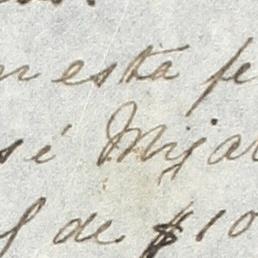 n esta fe
sé Mijar
de $10